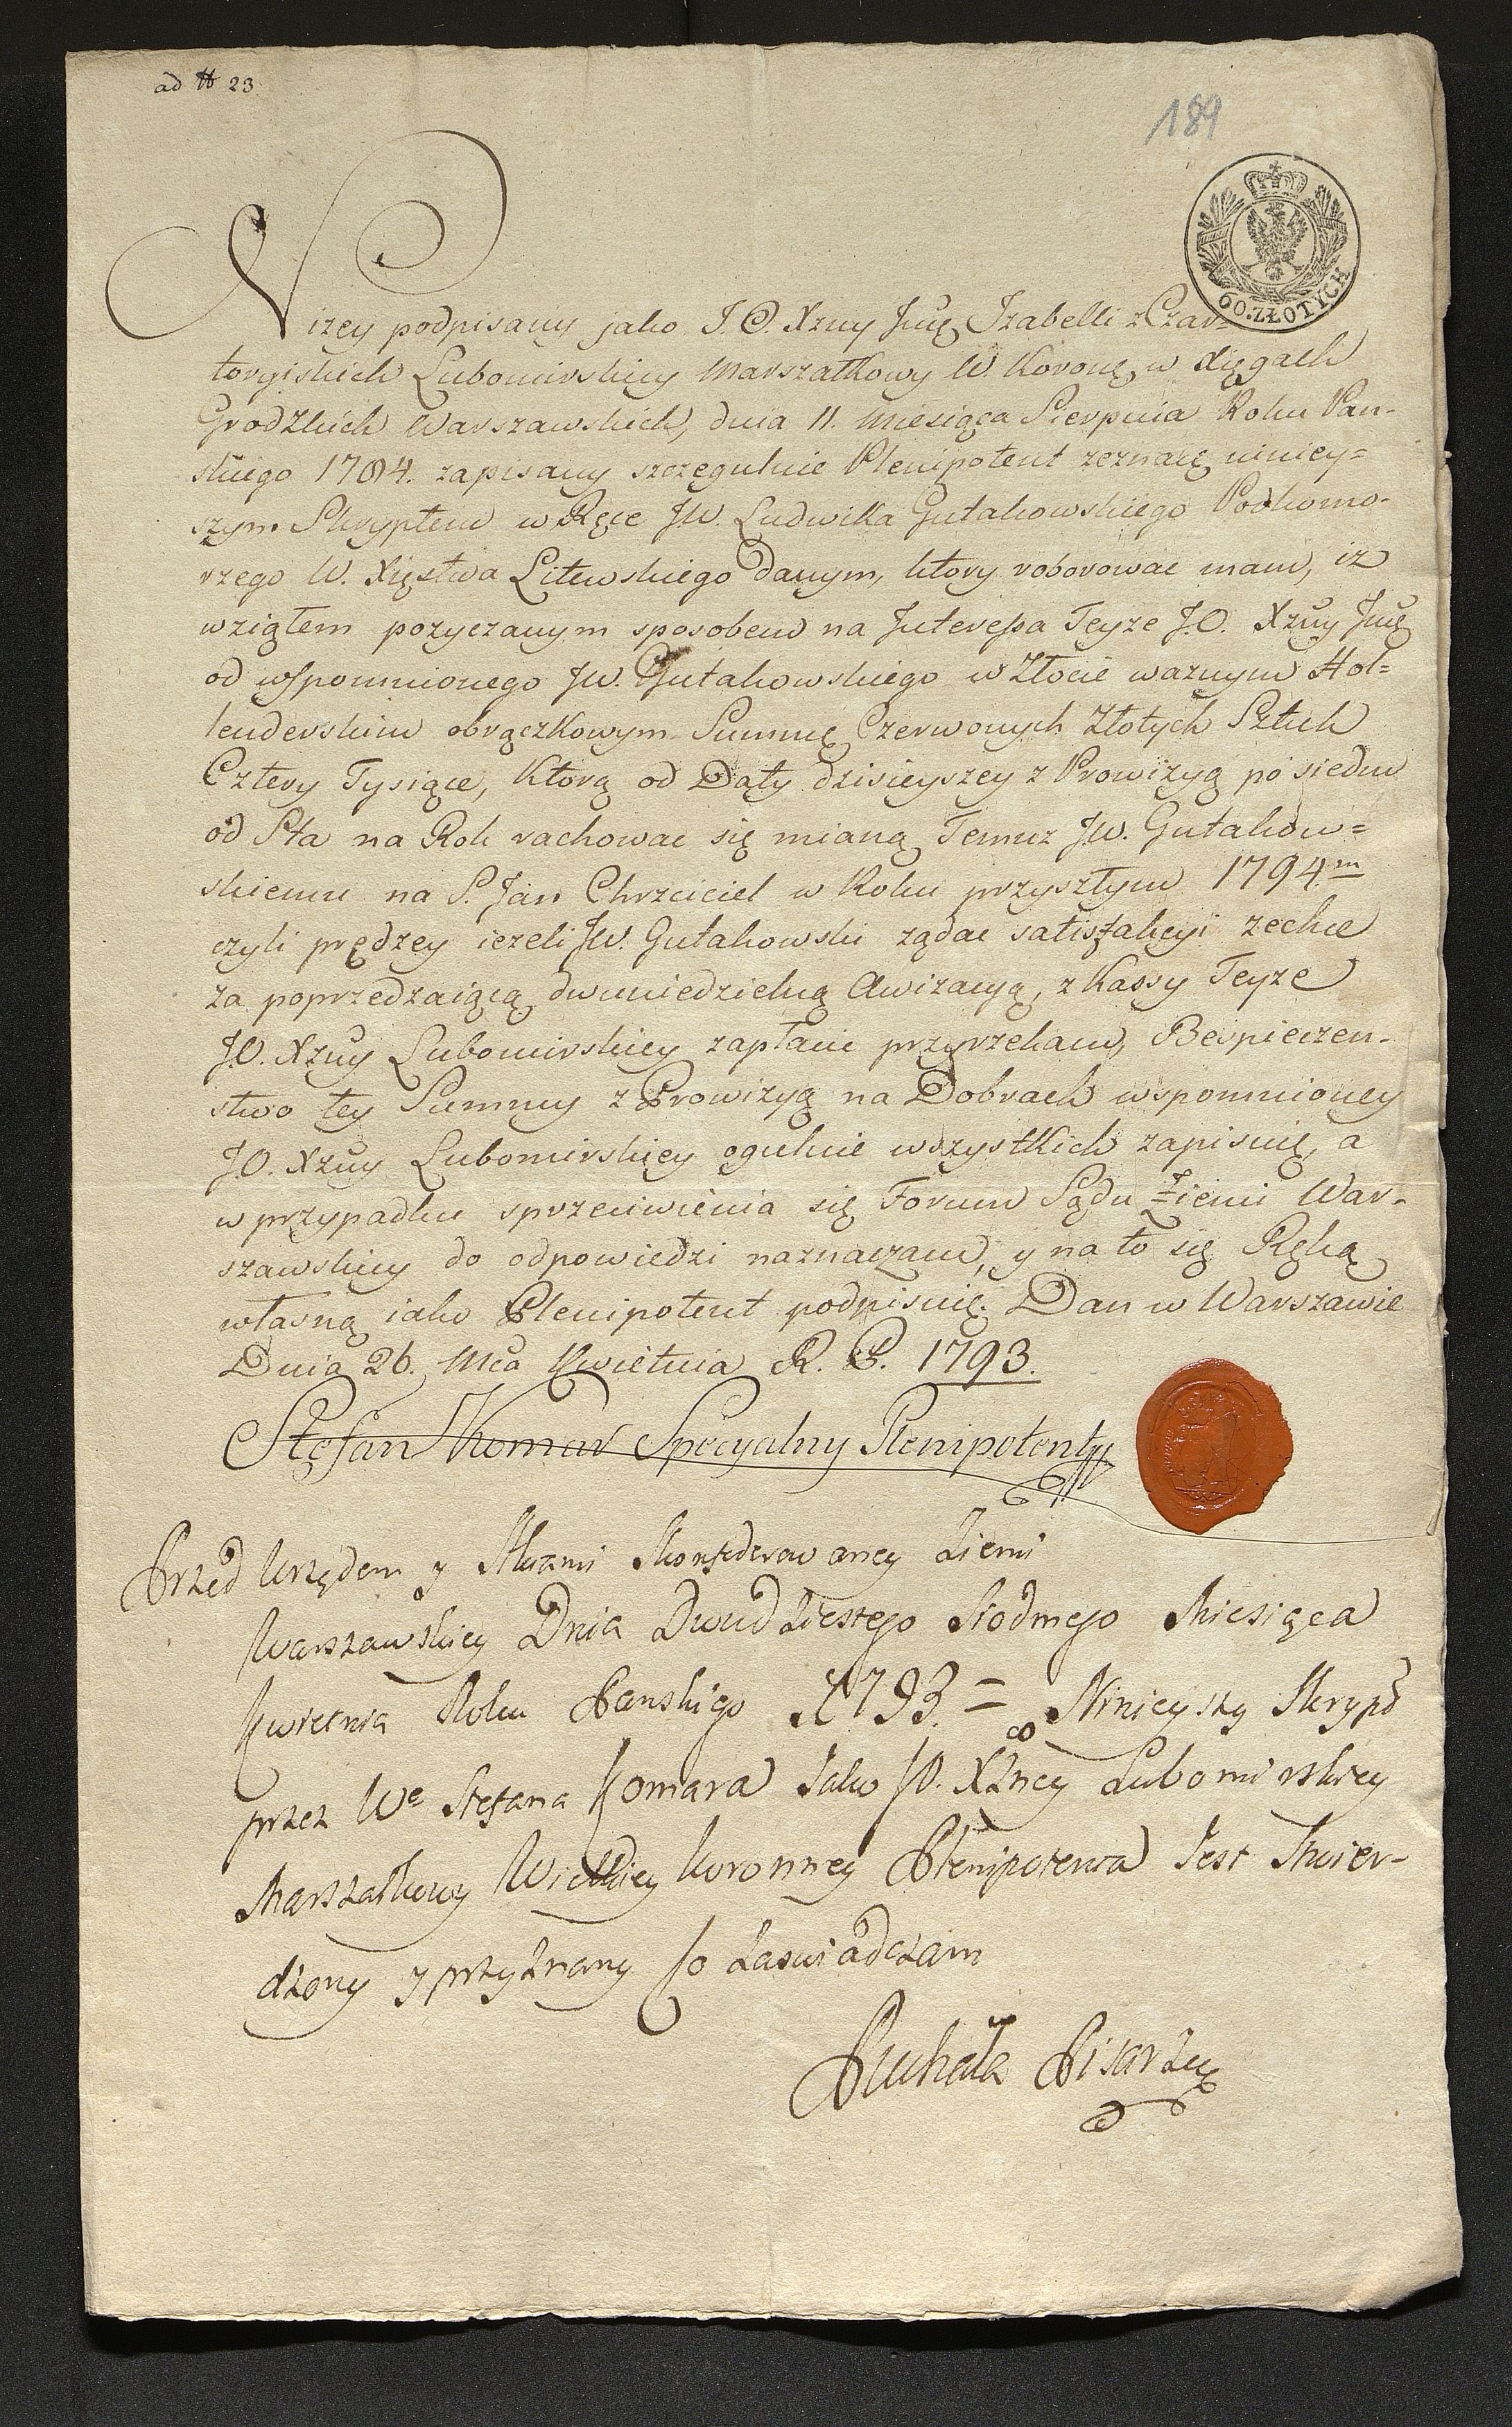 ad N 23
189
60. ZŁOTYCH
Niżey podpisany jako J. O. Xzny Jmę Izabelli z Czar=
toryiskich Lubomirskiey Marszałkowy W. Koroney w Xięgach
Grodzkich Warszawskich, dnia 11. Miesiąca Sierpnia Roku Pań-
skiego 1784. zapisany szczegulnie Plenipotent zeznaię niniey=
szym Skryptem w Ręce JW. Ludwika Gutakowskiego Podkomo-
rzego W. Xięstwa Litewskiego danym, ktory roborowac mam, iz
wziąłem pozyczanym sposobem na Interessa Teyze J.O. Xzny Jmę
od wspomnionego JW. Gutakowskiego w Złocie waznym Hol=
lenderskim obrączkowym Summę Czerwonych Złotych Sztuk
Cztery Tysiące, Ktorą od Daty dzisieyszey z Prowizyą po siedm
od Sta na Rok rachowac się mianą Temuz JW. Gutakow=
skiemu na S. Jan Chrzciciel w Roku przyszłym 1794.m
czyli prędzey iezeli JW. Gutakowski ządac satisfakcyi zechce
za poprzedzaiącą dwuniedzielną Awizacyą, z Kassy Teyze
J.O. Xzny Lubomirskiey zapłacic przyrzekam, Bespieczen-
stwo tey Summy z Prowizyą na Dobrach wspomnioney
J.O. Xzny Lubomirskiey ogulnie wszystkich zapisuię, a
w przypadku sprzeciwienia się Forum Sądu Ziemi War-
szawskiey do odpowiedzi naznaczam, y na to się Ręką
własną iako Plenipotent podpisuię. Dan w Warszawie
Dnia 26. Mca Kwietnia R. P. 1793.
Stefan Komar Specyalny Plenipotent
Przed Urzędem y Aktami Skonfederowaney Ziemi
Warszawskiey Dnia Dwudziestego Siodmego Miesiąca
Kwietnia Roku Panskiego 1793. = Ninieyszy Skrypt
przez We Stefana Komara Jako JO. Xzney Lubomirskiey
Marszałkowy Wielkiey Koronney Plenipotenta Jest Stwier-
dzony y przyznany Jo Zaswiadczam
Puchała Pisarz